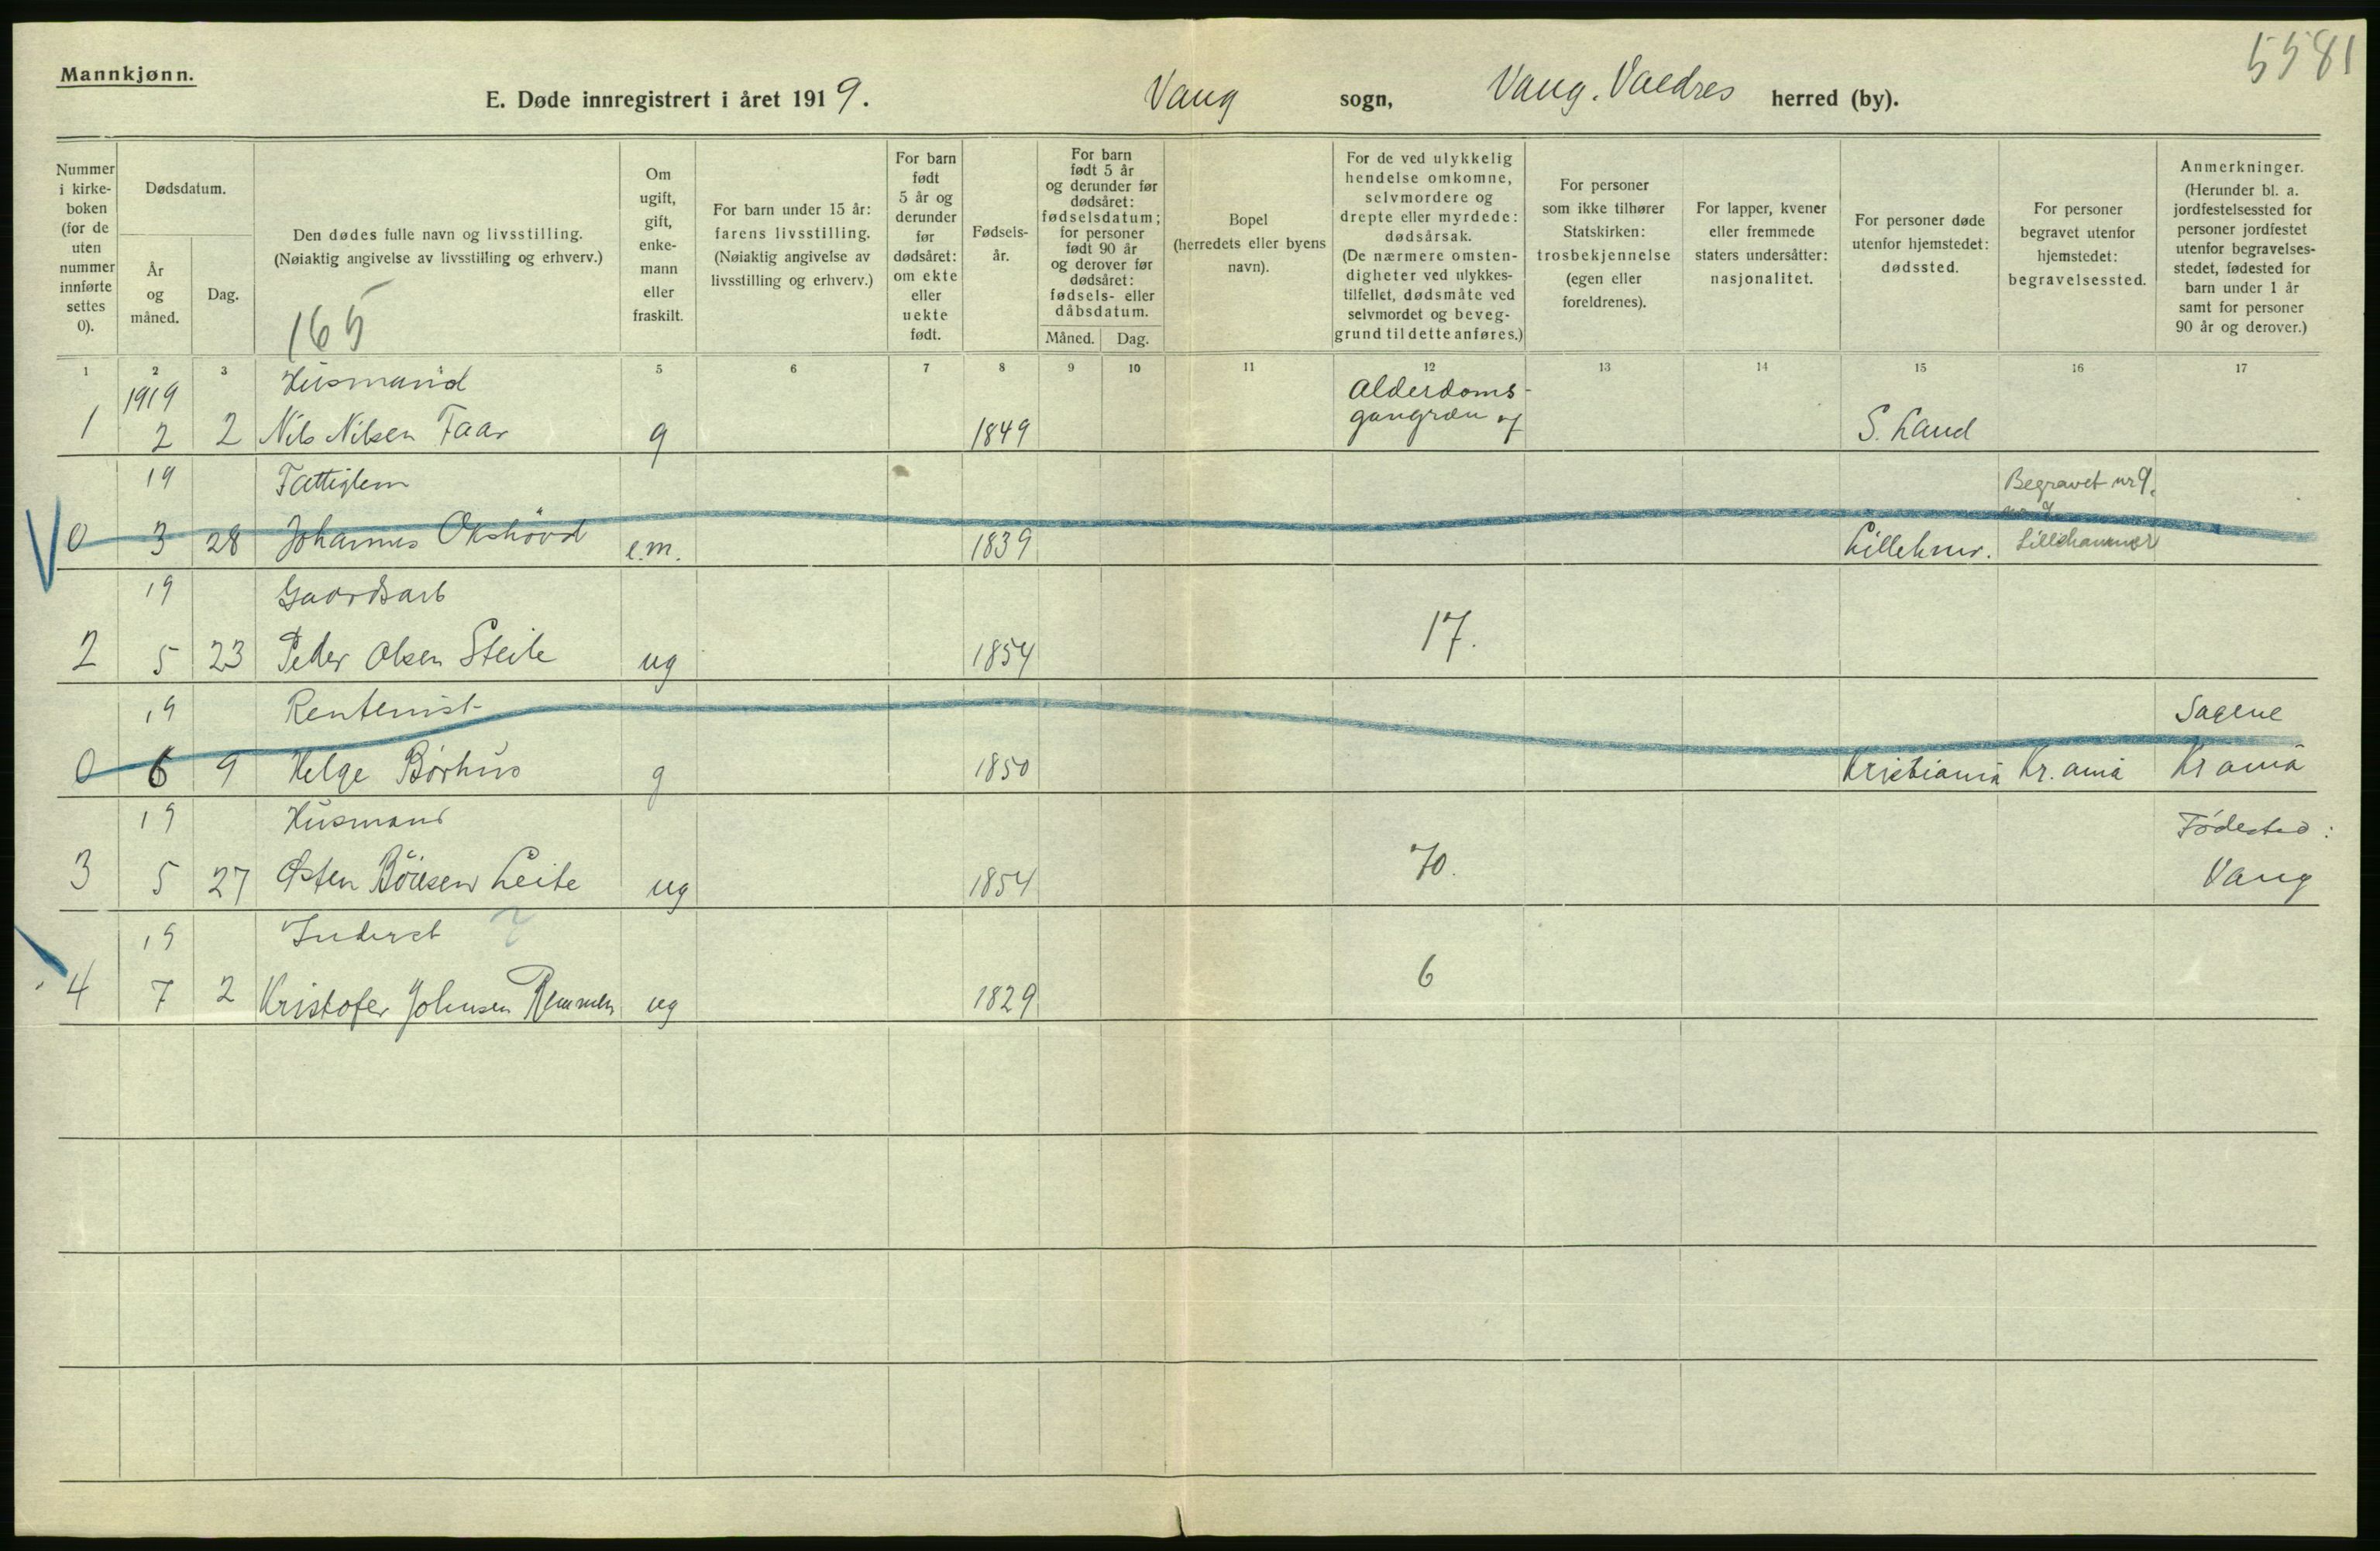 5581
Mannkjønn.
E. Døde innregistrert i året 1919. Vang sogn, Vang. Valdres herred (by).
Nummer
i kirke-
boken
(for de
uten
nummer
innførte
settes
0).
Dødsdatum.
År
og
måned.
Dag.
Den dødes fulle navn og livsstilling.
(Nøiaktig angivelse av livsstilling og erhverv.)
165
Om
ugift,
gift,
enke-
mann
eller
fraskilt.
For barn under 15 år:
farens livsstilling.
(Nøiaktig angivelse av
livsstilling og erhverv.)
For barn
født
5 år og
derunder
før
dødsåret:
om ekte
eller
uekte
født.
Fødsels-
år.
For barn
født 5 år
og derunder før
dødsåret:
fødselsdatum;
for personer
født 90 år
og derover før
dødsåret:
fødsels- eller
dåbsdatum.
Måned. Dag.
Bopel
(herredets eller byens
navn).
For de ved ulykkelig
hendelse omkomne,
selvmordere og
drepte eller myrdede:
dødsårsak.
(De nærmere omsten-
digheter ved ulykkes-
tilfellet, dødsmåte ved
selvmordet og beveg-
grund til dette anføres.)
For personer
som ikke tilhører
Statskirken:
trosbekjennelse
(egen eller
foreldrenes).
For lapper, kvener
eller fremmede
staters undersåtter:
nasjonalitet.
For personer døde
utenfor hjemstedet:
dødssted.
For personer
begravet utenfor
hjemstedet:
begravelsessted.
Anmerkninger.
(Herunder bl. a.
jordfestelsessted for
personer jordfestet
utenfor begravelses-
stedet, fødested for
barn under 1 år
samt for personer
90 år og derover.)
1 2 3 4 5 6 7 8 9 10 11 12 13 14 15 16 17
1919 Husmand Alderdoms-
1 2 2 Nils Nilsen Faar g 1849 gangræn S. Land
19 Fattiglem Begravet nr 9.
0 3 28 Johannes Okshövd e.m. 1839 Lillehmr. Lillehammer
19 Gaardsarb
2 5 23 Peder Olsen Steile ug 1854 17.
19 Rentenist Sagene
0 6 9 Helge Børhus g 1850 Kristiania Kr.ania Kr ania
19 Husmand Fødested:
3 5 27 Østen Böiesen Leite ug 1854 70. Vang
19 Inderst
4 7 2 Kristofer Johnsen Remmen ug 1829 6